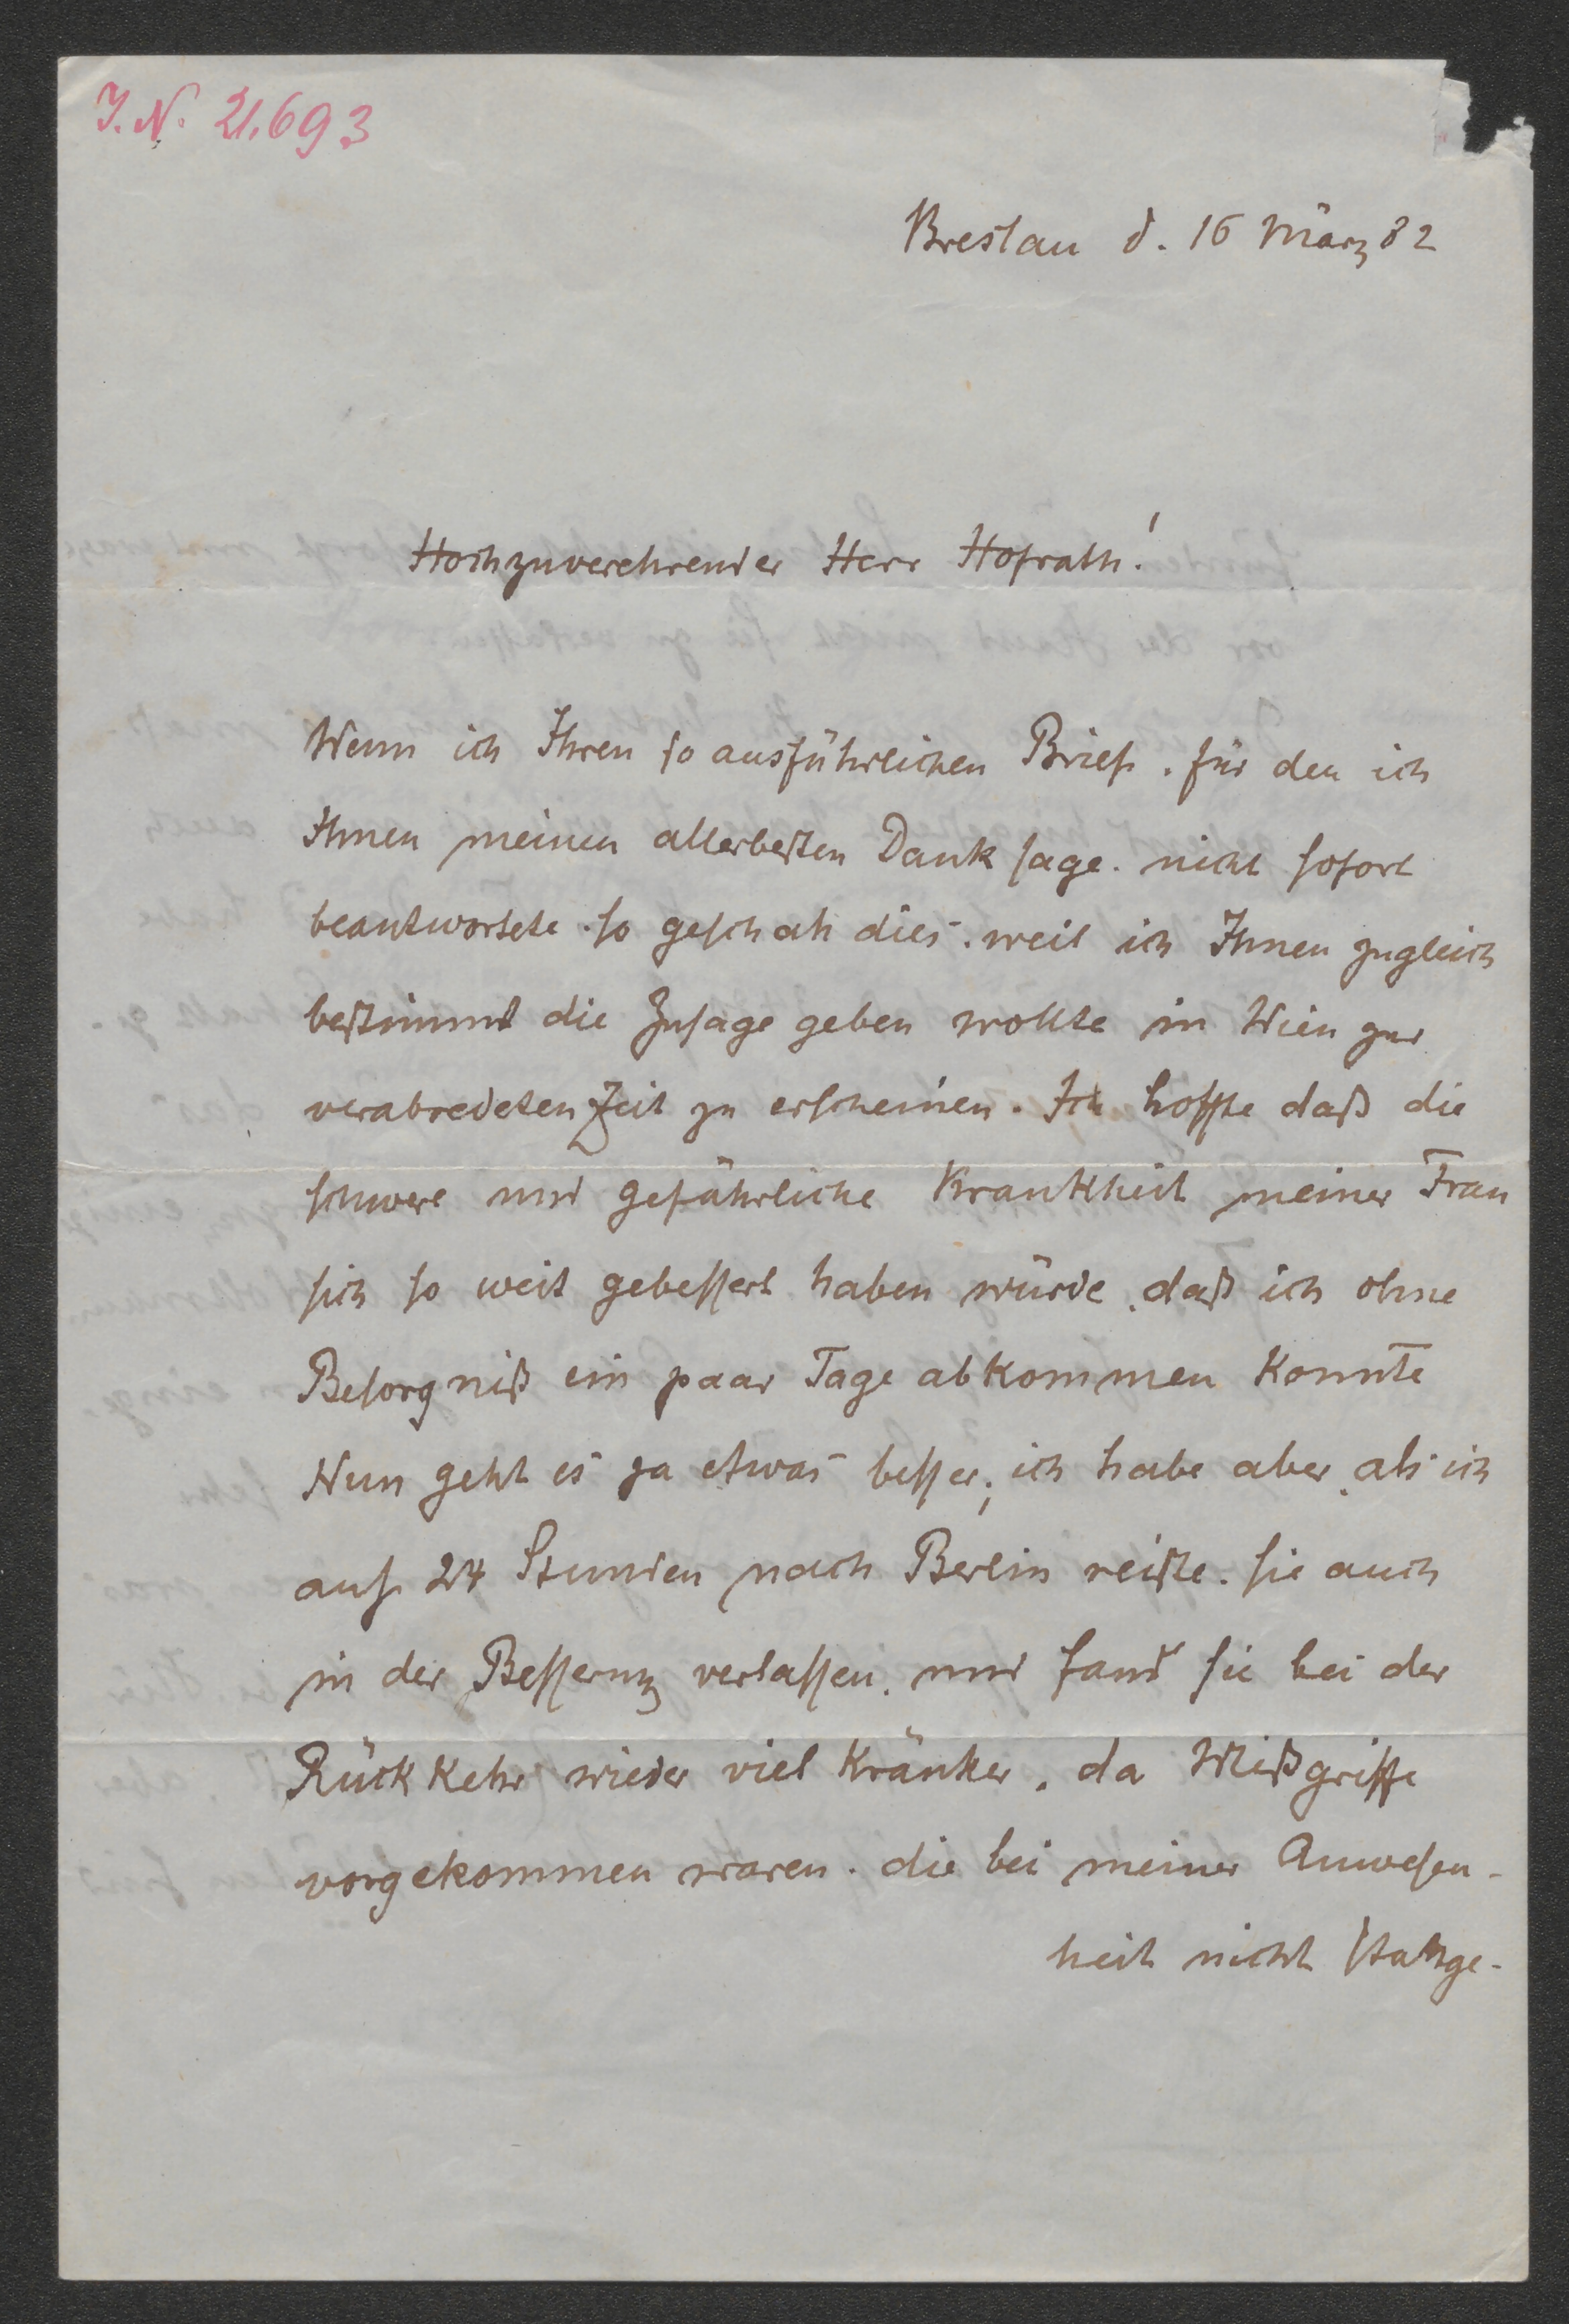 I. N. 21.693
Breslau d. 16 März 82
Hochzuverehrender Herr Hofrath!
Wenn ich Ihren so ausführlichen Brief, für den ich
Ihnen meinen allerbesten Dank sage, nicht sofort
beantwortete, so geschah dies, weil ich Ihnen zugleich
bestimmt die Zusage geben wollte in Wien zur
verabredeten Zeit zu erscheinen. Ich hoffte daß die
schwere und gefährliche Krankheit meiner Frau
sich so weit gebessert haben würde, daß ich ohne
Besorgniß ein paar Tage abkommen konnte
Nun geht es ja etwas besser; ich habe aber, als ich
auf 24 Stunden nach Berlin reiste, sie auch
in der Besserung verlassen, und fand sie bei der
Rückkehr wieder viel kränker, da Mißgriffe
vorgekommen waren, die bei meiner Anwesen-
heit nicht stattge-